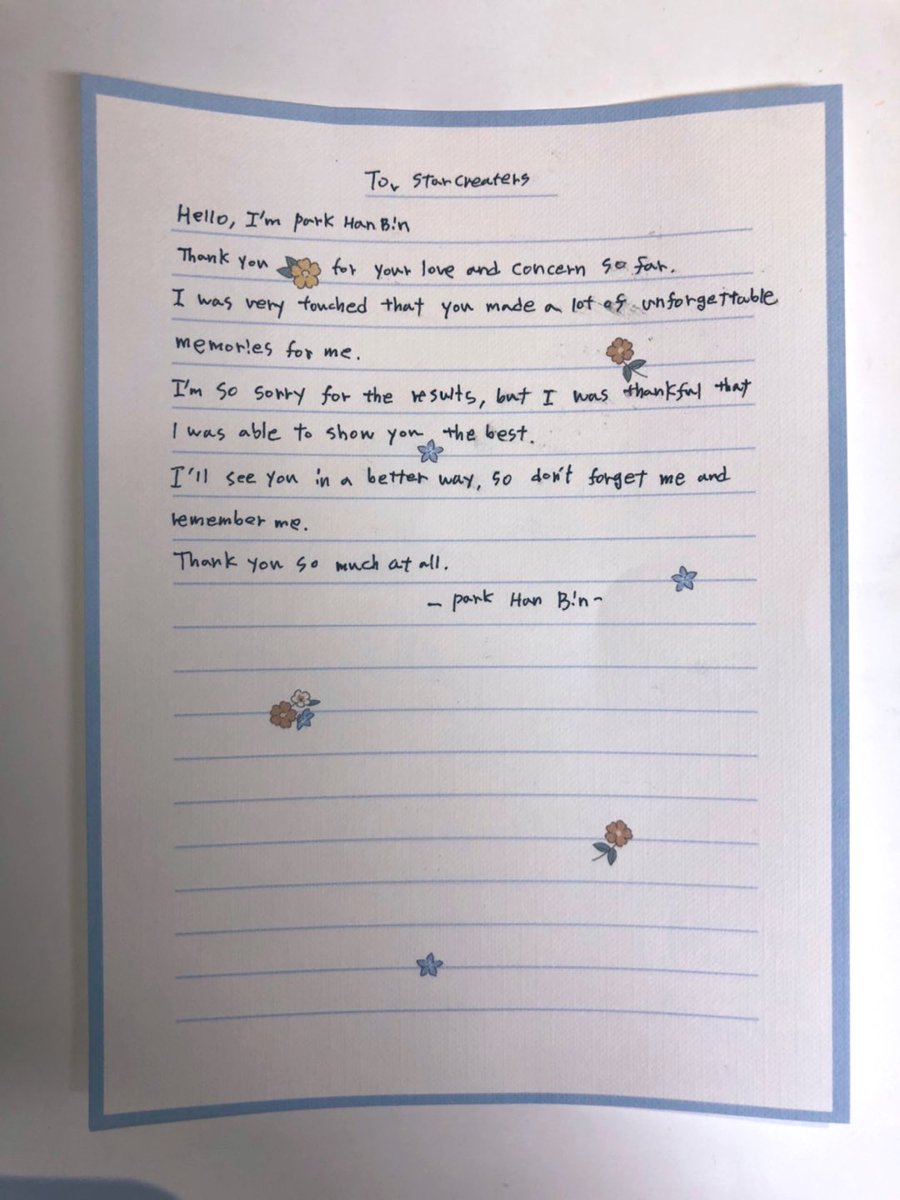 To. Starcreaters
Hello, I'm park Han Bin
Thank you for your love and concern so far.
I was very touched that you made a lot of unforgettable
memories for me.
I'm so sorry for the results, but I was thankful that
I was able to show you the best.
I'll see you in a better way, so don't forget me and
remember me.
Thank you so much at all.
- park Han Bin-